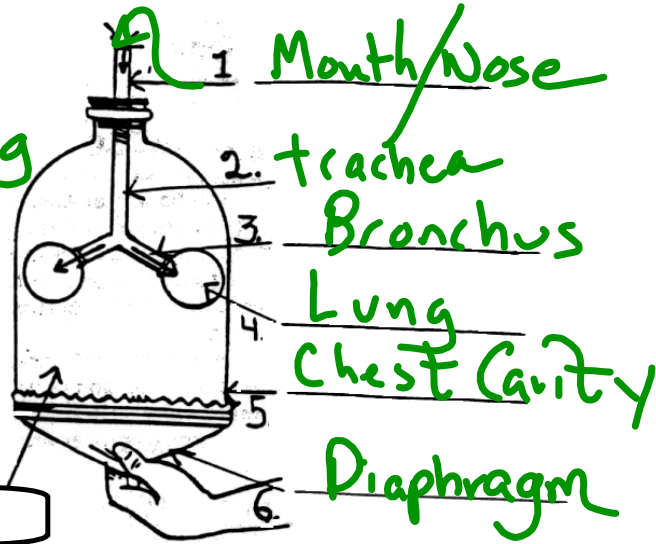 1 Mouth/Nose
g
2. trachea
3. Bronchus
4. Lung
5 Chest Cavity
6. Diaphragm